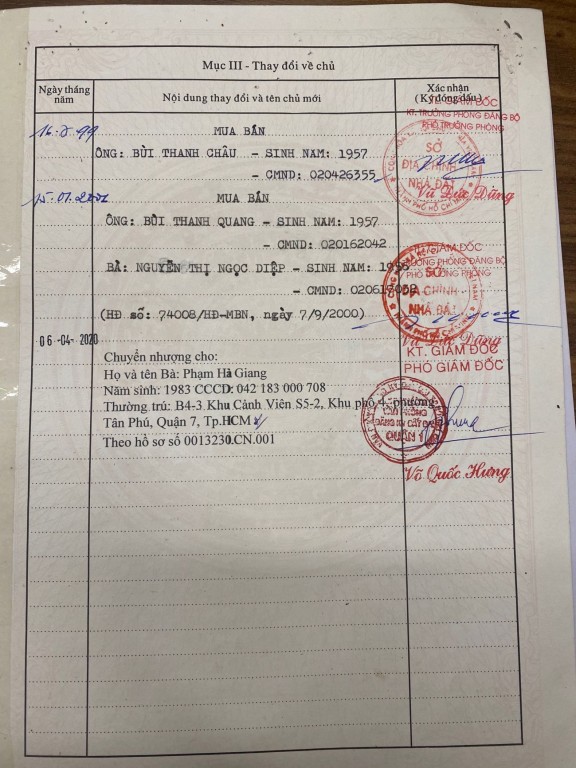 Mục III - Thay đổi về chủ
Ngày tháng năm
Nội dung thay đổi và tên chủ mới
Xác nhận
(Ký đóng dấu)
GIÁM ĐỐC
KT. TRƯỞNG PHÒNG ĐĂNG BỘ
PHÓ TRƯỞNG PHÒNG
MUA BÁN
ÔNG: BÙI THANH CHÂU - SINH NAM: 1957
- CMND: 020426355
SỞ
ĐỊA CHÍNH
NHÀ ĐẤT
Vũ Đức Dăng
MUA BÁN
ÔNG: BÙI THANH QUANG - SINH NAM: 1957
- CMND: 020162042
GIÁM ĐỐC
TRƯỞNG PHÒNG ĐĂNG BỘ
PHÓ TRƯỞNG PHÒNG
BÀ: NGUYỄN THỊ NGỌC DIỆP - SINH NAM:
- CMND:
SỞ
ĐỊA CHÍNH
NHÀ ĐẤT
(HĐ số: 74008/HĐ-MBN, ngày 7/9/2000)
Vũ Đức Dăng
06-04-2020
KT. GIÁM ĐỐC
PHÓ GIÁM ĐỐC
Chuyển nhượng cho:
Họ và tên Bà: Phạm Hà Giang
Năm sinh: 1983 CCCD: 042 183 000 708
Thường trú: B4-3 Khu Cảnh Viên S5-2, Khu phố 4, phường
Tân Phú, Quận 7, Tp.HCM
Theo hồ sơ số 0013230.CN.001
VĂN PHÒNG
ĐĂNG KÝ ĐẤT ĐAI
QUẬN 1
Võ Quốc Hưng